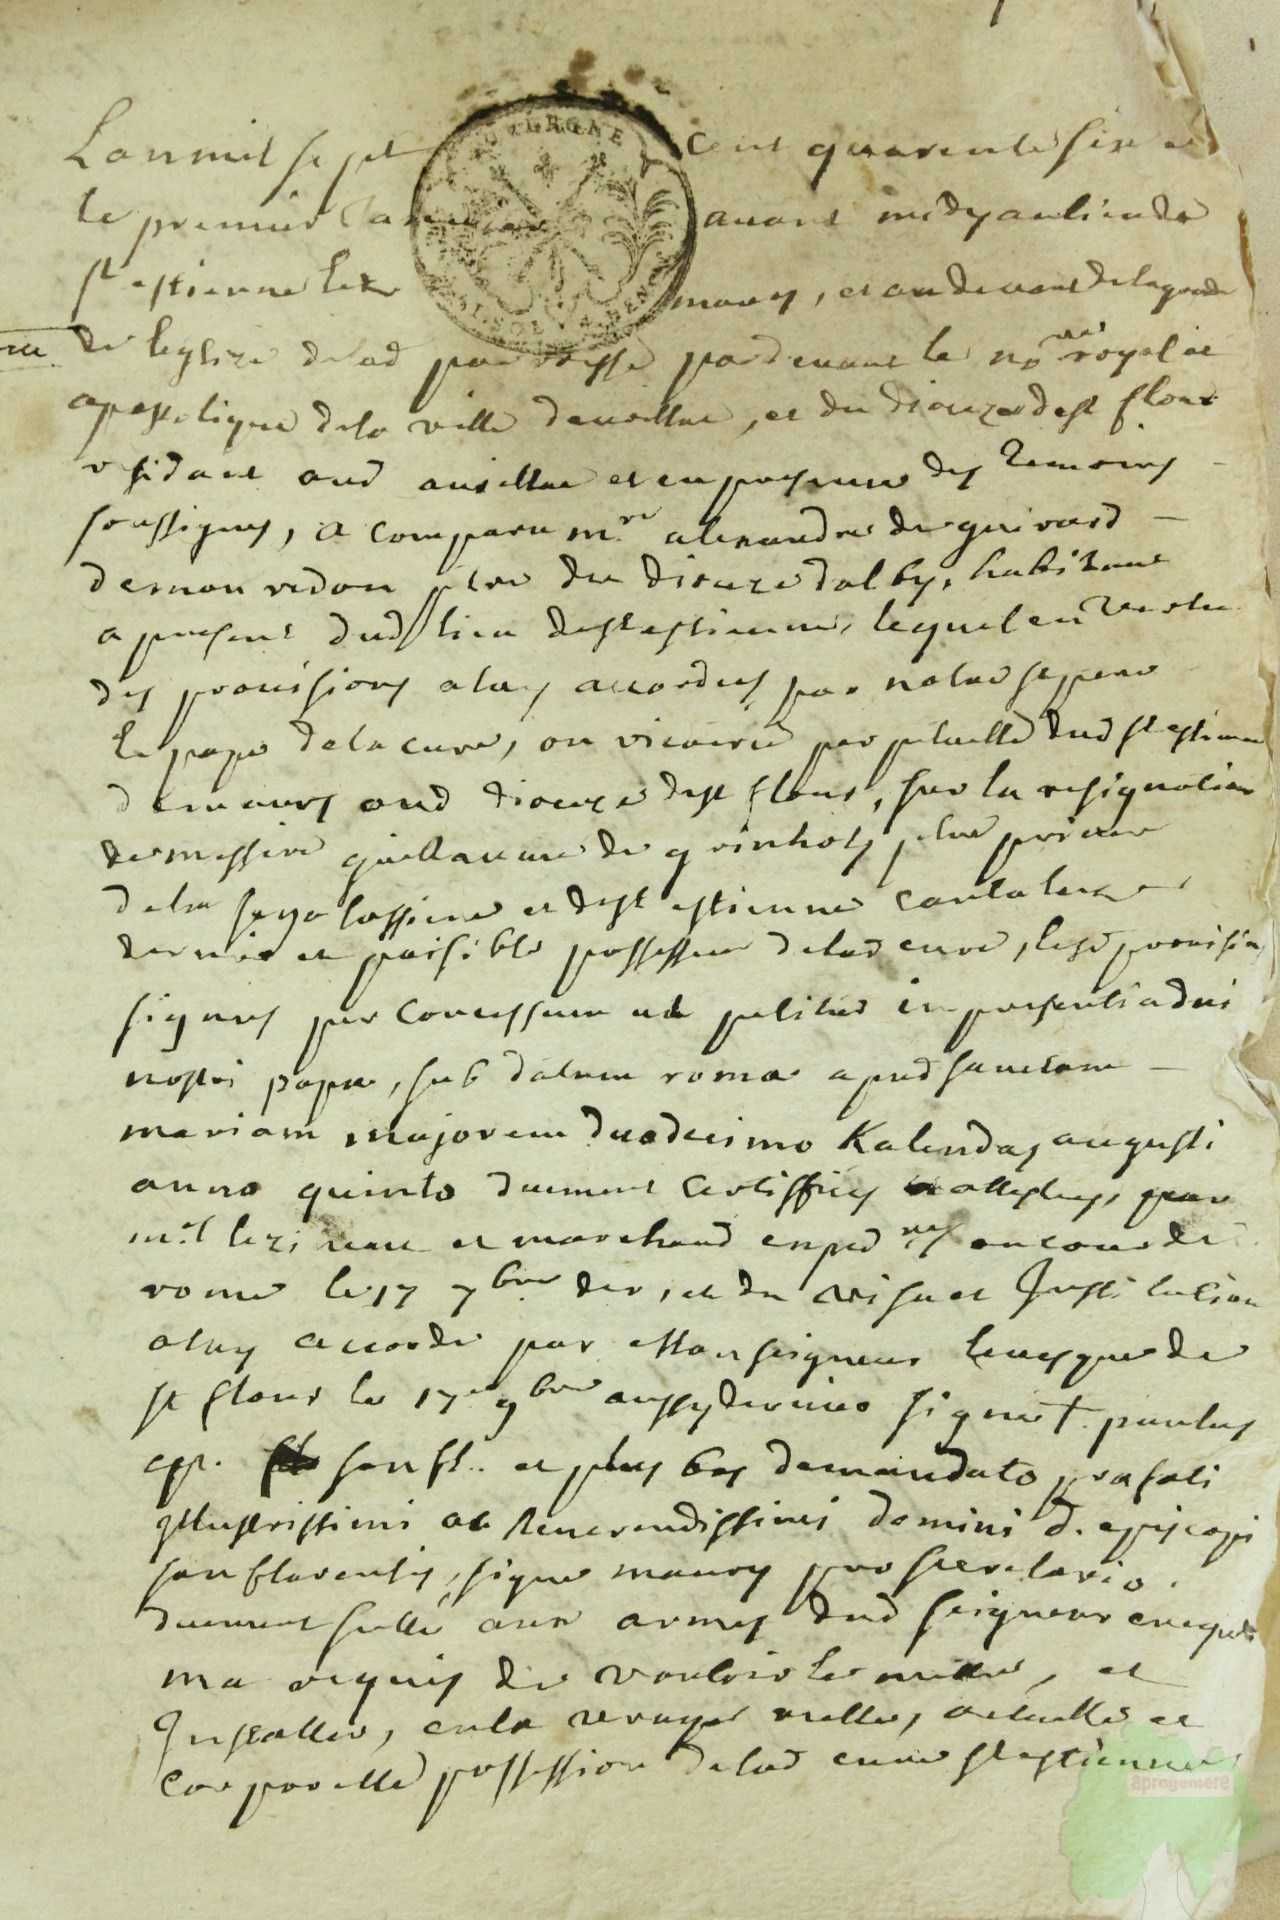 Lan mil sept cent quarente six et
le premier Janvier avant midy au lieu de
st estienne lez maurs, et au devant de la grande
de leglize de lad parroisse pardevant le nore royal et
apostolique de la ville daurillac, et du dioceze de st flour
residant aud aurillac et en presence des temoins
soussignes, a comparu mre alexandre de guirard
de montredon ptre du dioceze dalby, habitant
a present dud lieu de st estienne, lequel en vertu
des provisions a luy accordees par notre st pere
le pape de la cure, ou vicairie perpetuelle dud st estienne
de maurs aud dioceze de st flour, sur la resignation
de messire guillaume de grinhols ptre prieur
de la segalassiere et de st estienne cantales
dernier et paisible possesseur de lad cure, lesd provisions
signees par concessum ut petitur in presentia dni
nostri papae, sub datum romae apud sanctam
mariam majorem duodecimo Kalendas augusti
anno quinto duement certiffiees attestees, par
mrs et marchand expedres en cour de
rome le 17 7bre der, et du visa et Institution
a luy accordé par Monseigneur levesque de
st flour le 17e 9bre aussy dernier signé † paulus
epr. sanfl.. et plus bas de mandato praefati
Illustrissimi ac Reverendissimi domini d. episcopi
sanflorensis, signe maury pro secretario.
duement scellé aux armes dud seigneur eveque
ma requis de vouloir le mettre, et
Installer, en la reelle, actuelle et
corporelle possession de lad cure st estienne
AUVERGNE
aprogemere